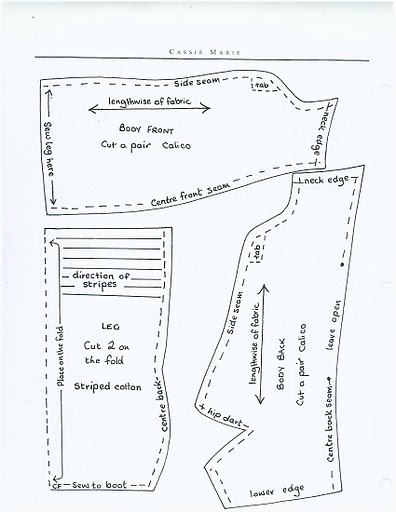 CASSIE MARIE
Side seam
tab
lengthwise of fabric
BODY FRONT
Cut a pair Calico
Sew leg here
neck edge
Centre front seam
neck edge
tab
Side seam
lengthwise of fabric
BODY BACK
Cut a pair Calico
leave open
Centre back seam
hip dart
lower edge
direction of
stripes
Place on the fold
LEG
Cut 2 on
the fold
Striped cotton
centre back
CF
Sew to boot